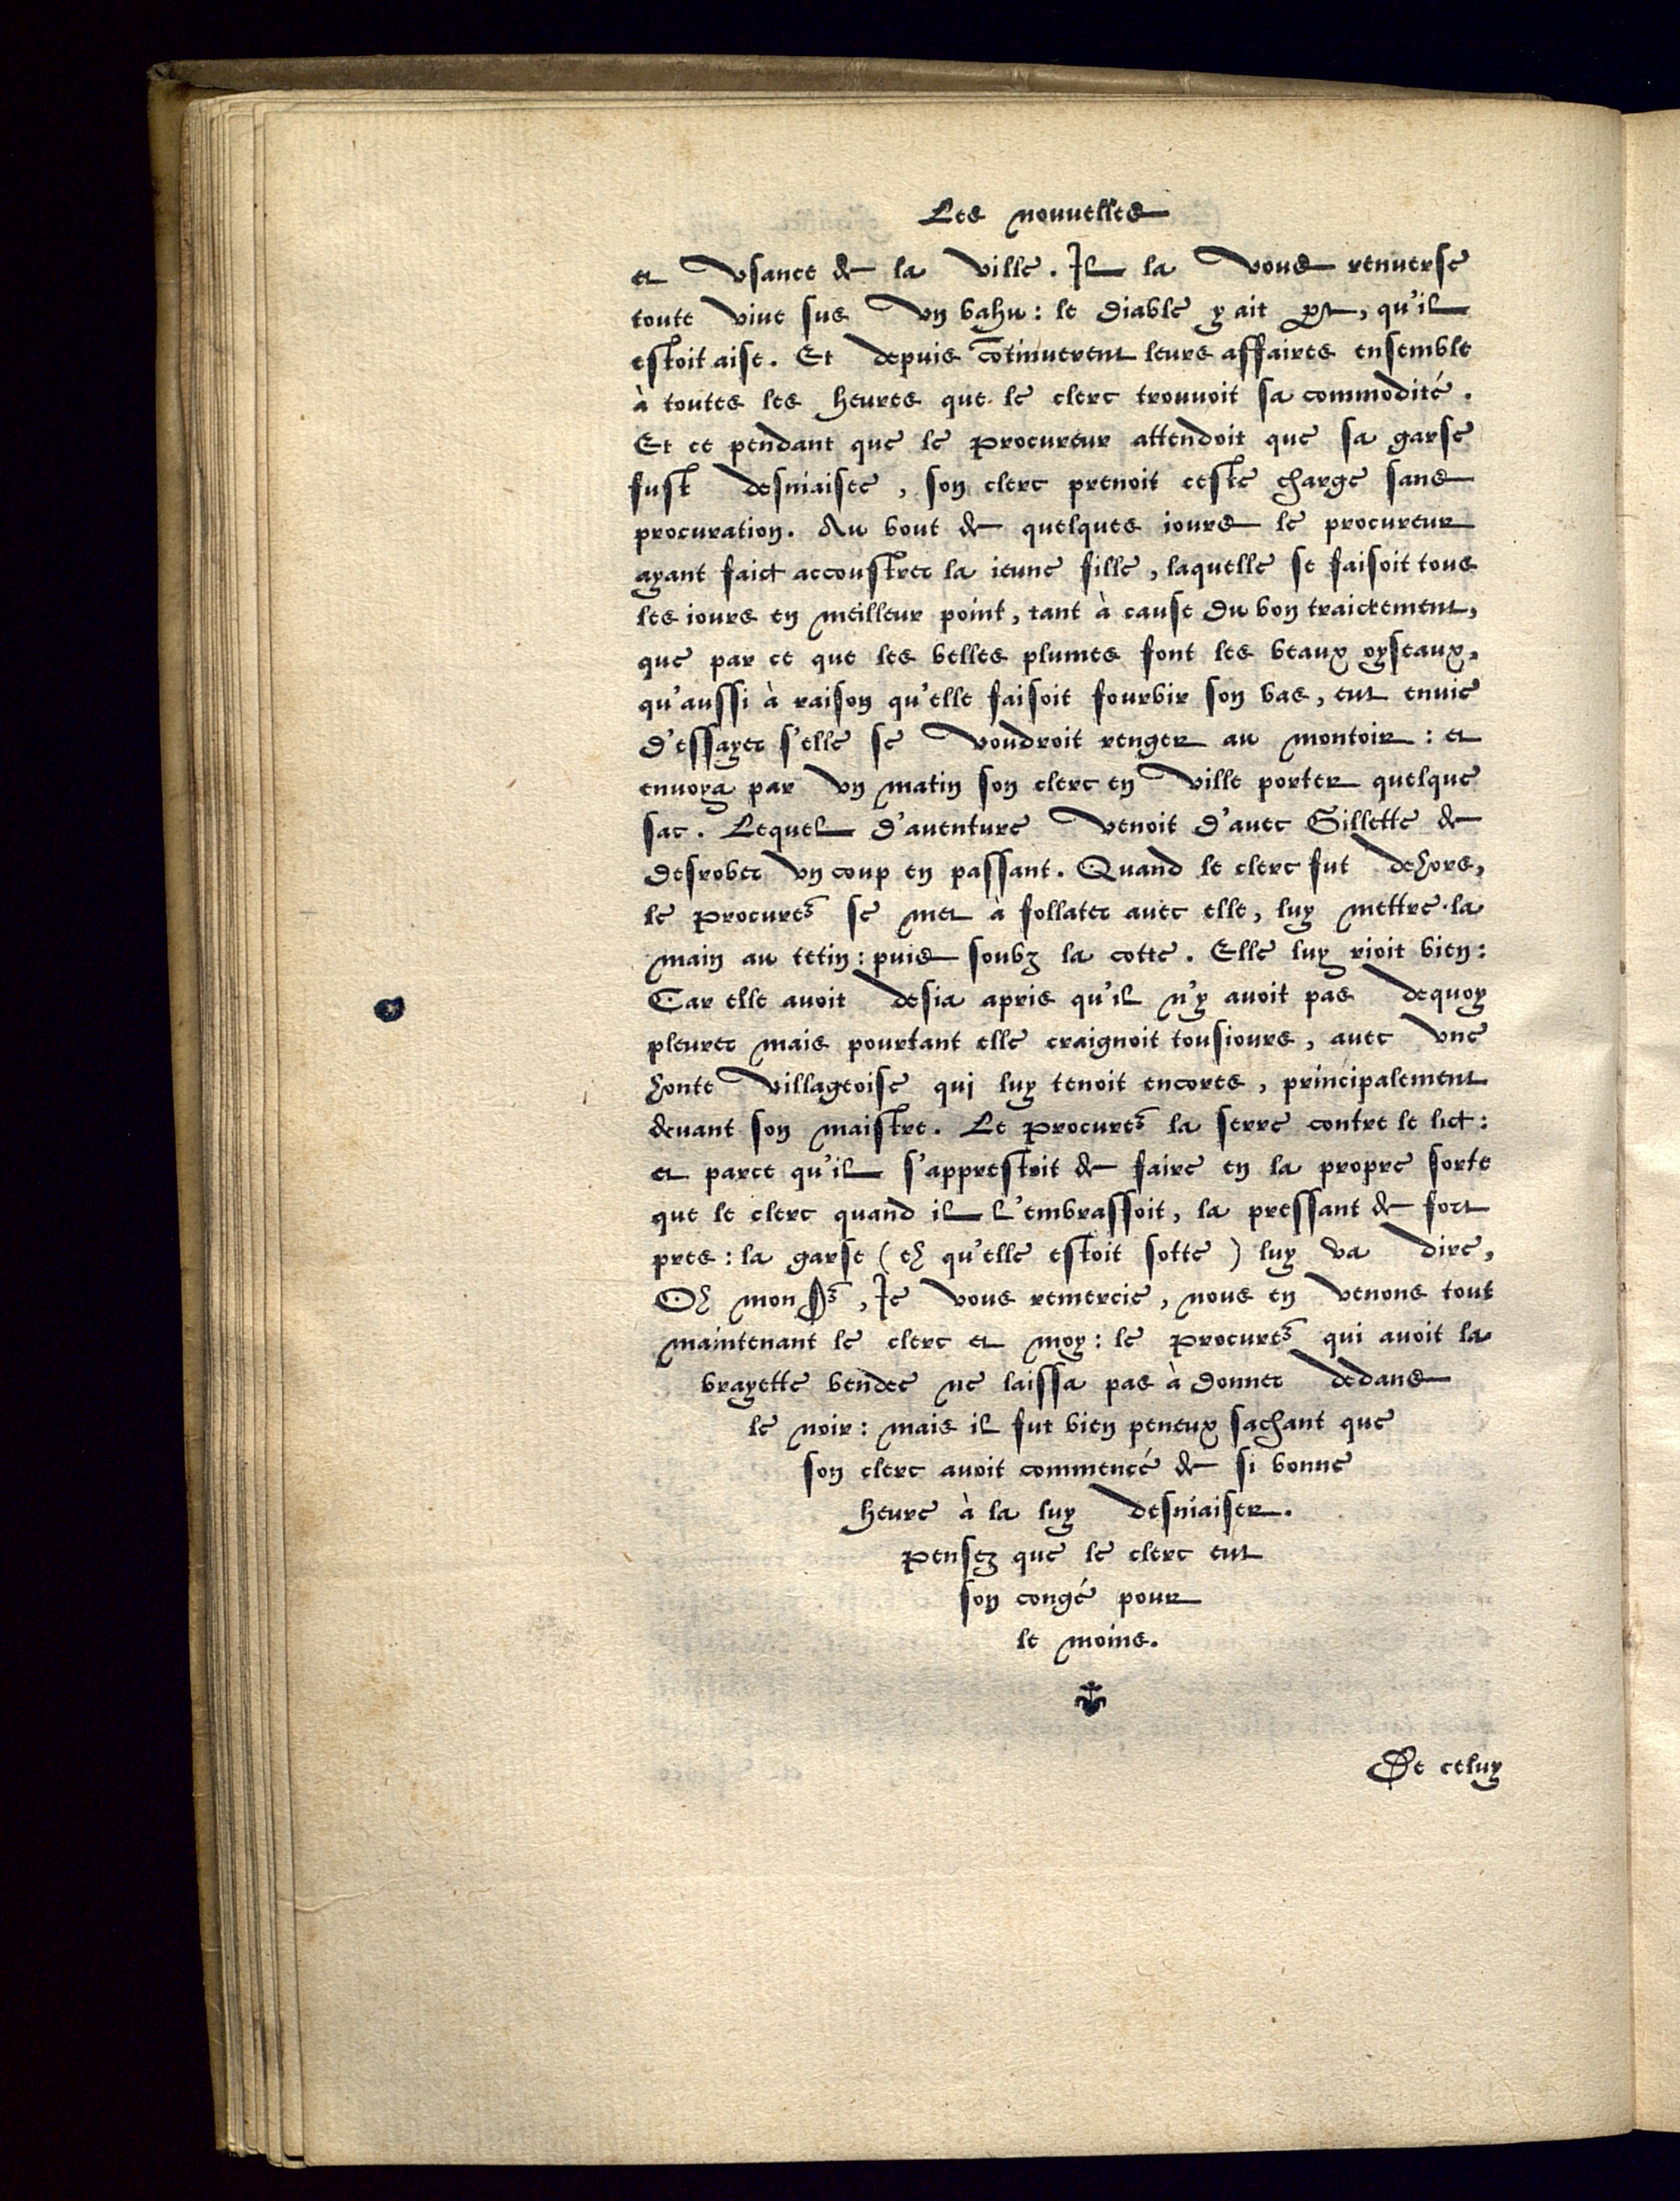 Les nouuelles
et vsance de la ville. Il la vous renuerse
toute viue sus vn bahu: le diable y ait part, qu'il
estoit aise. Et depuis cōtinuerent leurs affaires ensemble
à toutes les heures que le clerc trouuoit sa commodité.
Et ce pendant que le Procureur attendoit que sa garse
fust desniaisee, son clerc prenoit ceste charge sans
procuration. Au bout de quelques iours le procureur
ayant faict accoustrer la ieune fille, laquelle se faisoit tous
les iours en meilleur point, tant à cause du bon traictement,
que par ce que les belles plumes font les beaux oyseaux,
qu'aussi à raison qu'elle faisoit fourbir son bas, eut enuie
d'essayer s'elle se voudroit renger au montoir: et
enuoya par vn matin son clerc en ville porter quelque
sac. Lequel d'auenture venoit d'auec Gillette de
desrober vn coup en passant. Quand le clerc fut dehors,
le Procureʳ se met à follater auec elle, luy mettre la
main au tetin: puis soubz la cotte. Elle luy rioit bien:
Car elle auoit desia apris qu'il n'y auoit pas dequoy
pleurer mais pourtant elle craignoit tousiours, auec vne
honte villageoise qui luy tenoit encores, principalement
deuant son maistre. Le Procureʳ la serre contre le lict:
et parce qu'il s'apprestoit de faire en la propre sorte
que le clerc quand il l'embrassoit, la pressant de fort
pres: la garse (eh qu'elle estoit sotte) luy va dire,
Oh monsʳ, Ie vous remercie, nous en venons tout
maintenant le clerc et moy: le Procureʳ qui auoit la
brayette bendee ne laissa pas à donner dedans
le noir: mais il fut bien peneux sachant que
son clerc auoit commencé de si bonne
heure à la luy desniaiser.
Pensez que le clerc eut
son congé pour
le moins.
De celuy